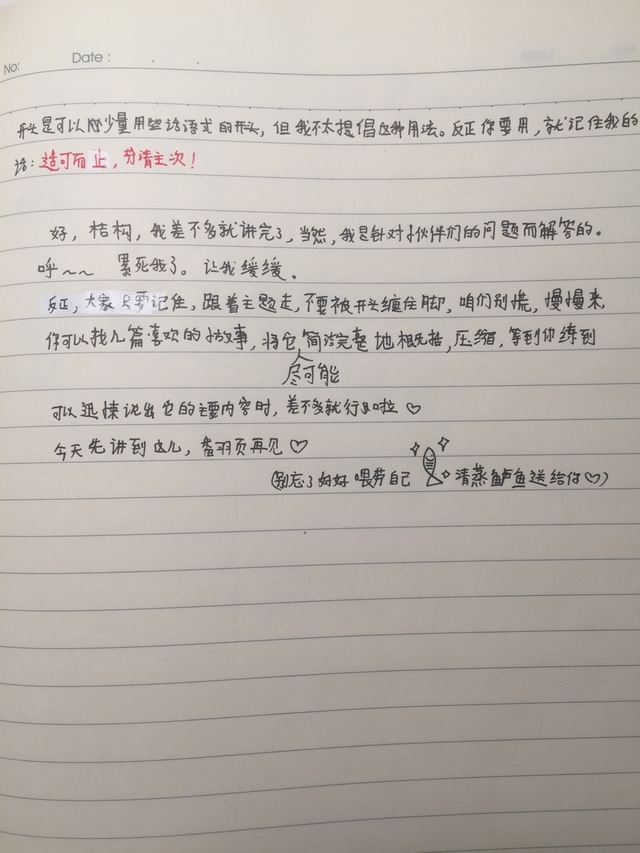 No:
Date :
开头是可以少量用些话语式的开头，但我不太提倡这种用法。反正你要用，就记住我的
话：适可而止，分清主次！
好，结构，我差不多就讲完了，当然，我是针对小伙伴们的问题而解答的。
呼～～ 累死我了。让我缓缓。
反正，大家只要记住，跟着主题走，不要被开头缠住脚，咱们别慌，慢慢来，
你可以找几篇喜欢的小故事，将它简洁完整地概括，压缩，等到你练到
尽可能
可以迅速说出它的主要内容时，差不多就行啦♡
今天先讲到这儿，番羽页再见♡
（别忘了好好喂劳自己 清蒸鲈鱼送给你♡）